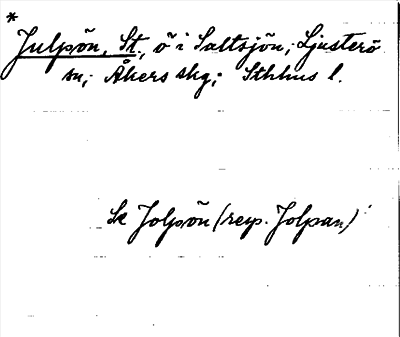 *
Julpön, St., ö i Saltsjön; Ljusterö
sn; Åkers skg; Sthlms l.
Se Jolpön (resp. Jolpan)